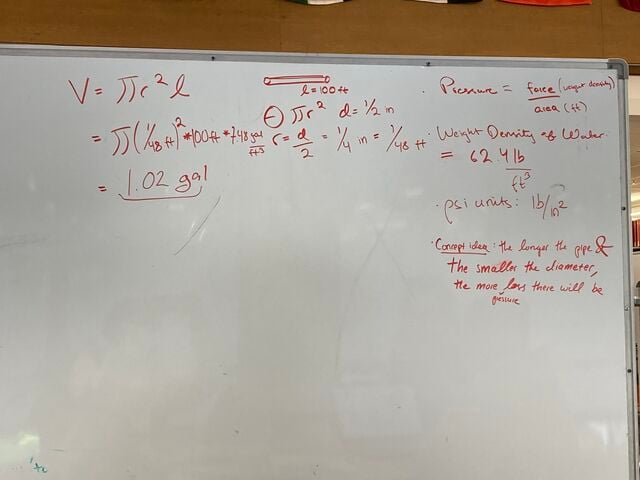 V = πr²l
= π(1/48 ft)² * 100ft * 7.48 gal/ft³
= 1.02 gal
l = 100ft
πr² d = 1/2 in
r = d/2 = 1/4 in = 1/48 ft
· Pressure = force (weight density) / area (ft)
· Weight Density of Water
= 62.4 lb/ft³
· psi units: lb/in²
· Concept idea: the longer the pipe &
the smaller the diameter,
the more pressure loss there will be